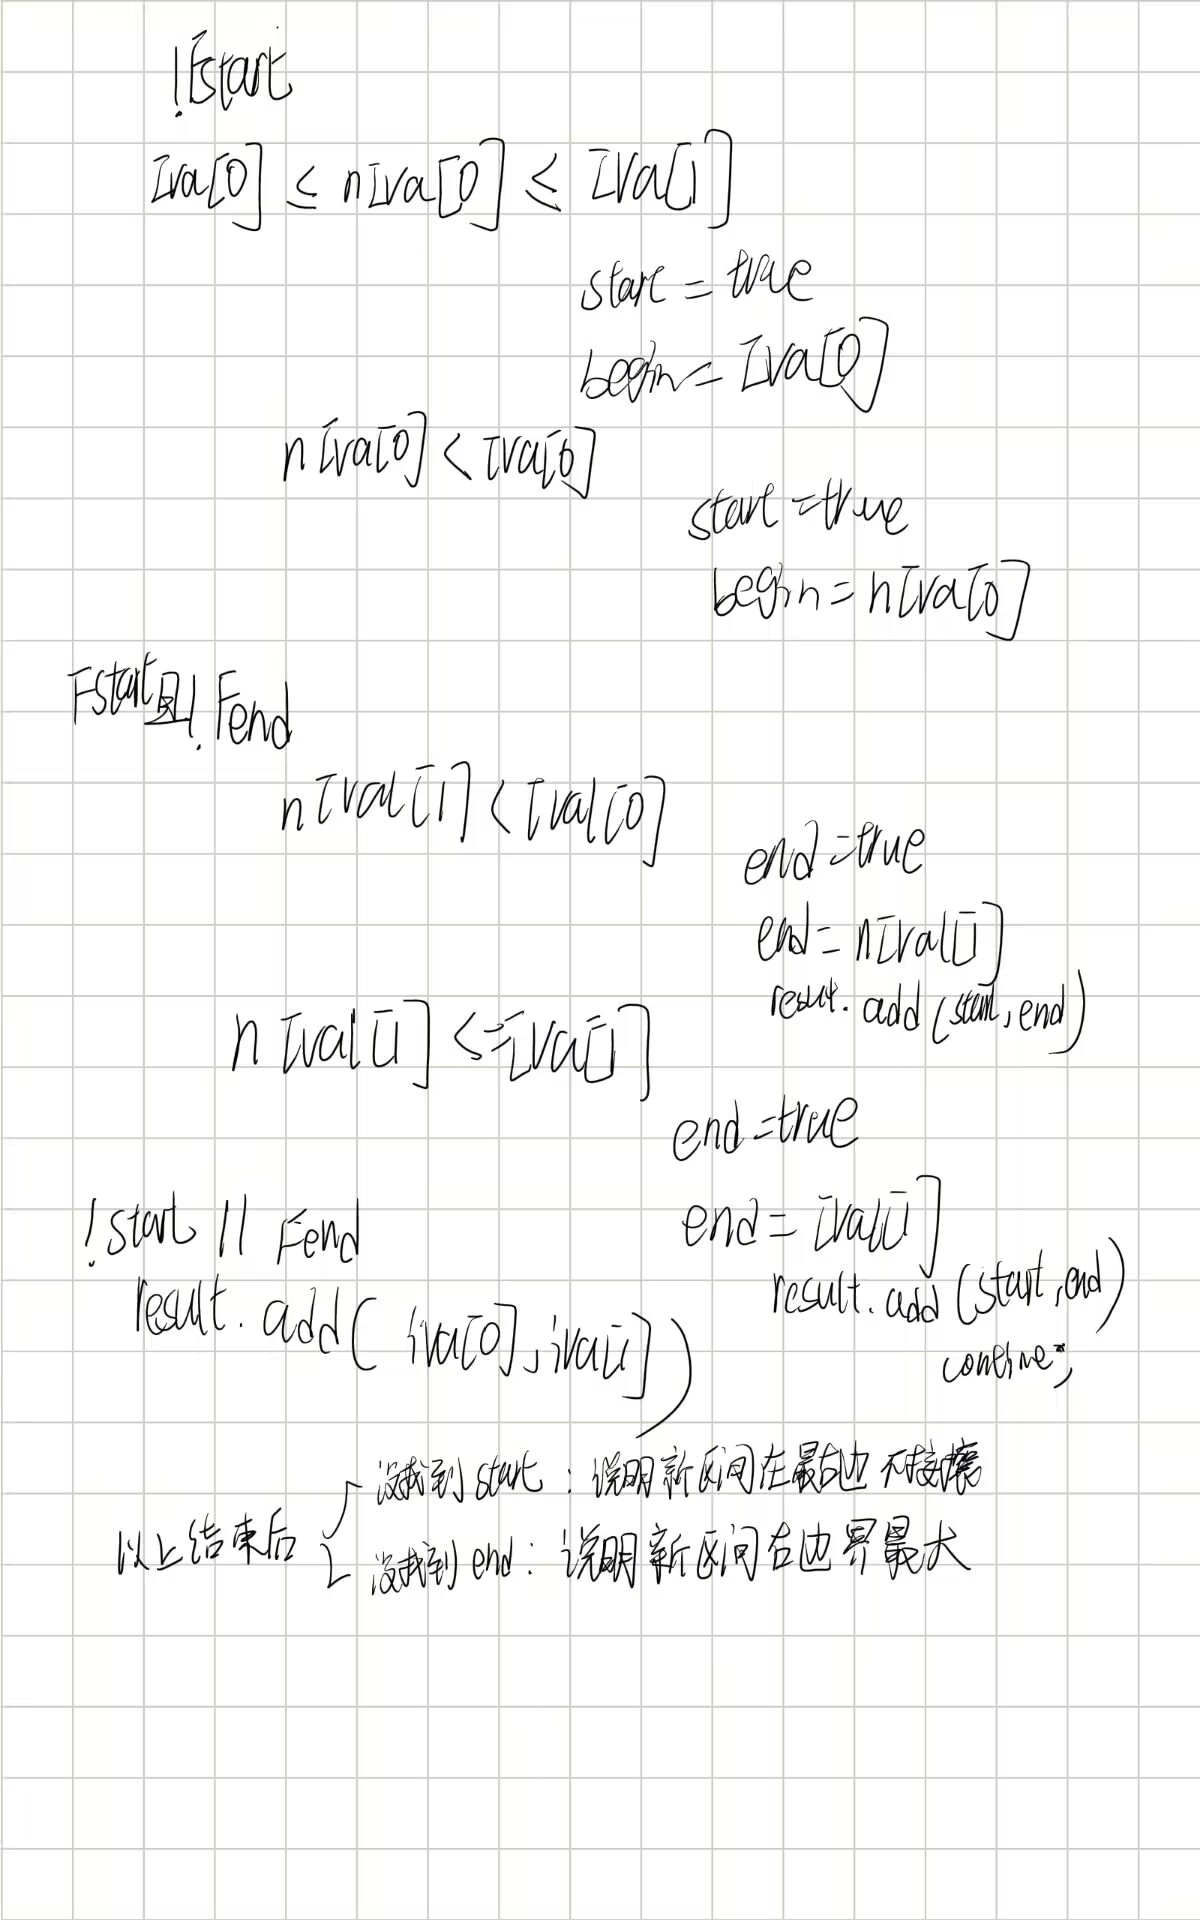 !Fstart
Iva[0] ≤ nIva[0] ≤ Iva[1]
start = true
begin = Iva[0]
nIva[0] < Iva[0]
start = true
begin = nIva[0]
Fstart且!Fend
nIval[1] < Ival[0]
end = true
end = nIval[1]
result.add(start, end)
nIval[1] <= Iva[1]
end = true
end = Ival[1]
result.add(start, end)
continue;
!start || Fend
result.add(iva[0], iva[1])
以上结束后
没找到 start：说明新区间在最右边 不接壤
没找到 end：说明新区间右边界最大